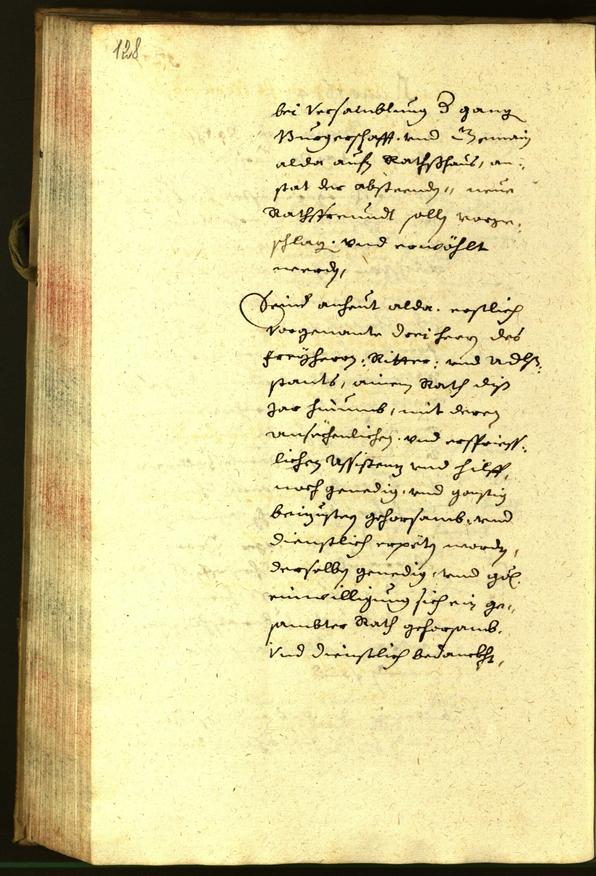 128
bei Versamblung d ganz
Burgerschafft vnd Gemain
alda aufm Rathshaus, an-
stat der absteenden, neue
Rathsfreundt solln vorge-
schlag. vnd erwöhlt
werden,
Seind anheut alda. erstlich
vorgenante drei herrn des
freyherrn: Ritter: vnd Adls-
stants, ainem Rath diss
Jar hinumb, mit deren
ansechenlichen vnd erspriess-
lichen Assistenz vnd hilff,
noch genedig vnd günstig
beizusten gehorsamb vnd
dienstlich erpeten worden,
derselben genedig vnd
einwilligung sich ein ge-
sambter Rath gehorsamb.
vnd dienstlich bedanckht,